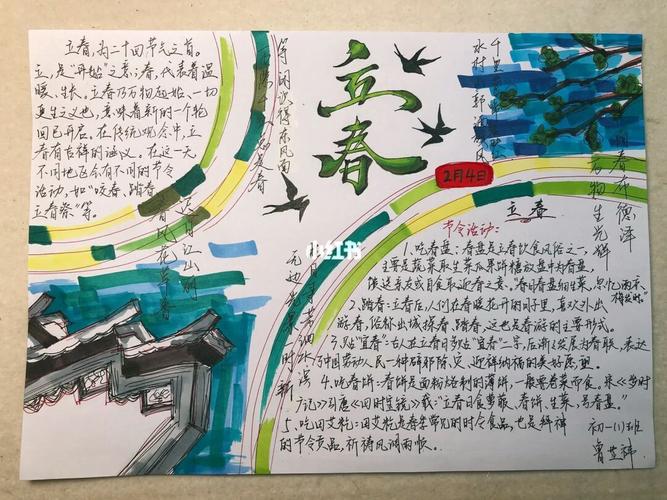 立春,为二十四节气之首。
立,是"开始"之意;春,代表着温
暖、生长。立春乃万物起始、一切
更生之义也,意味着新的一个轮
回已开启。在传统观念中,立
春有吉祥的涵义。在这一天
不同地区会有不同的节令
活动,如"咬春、踏春、
立春祭"等。
迟日江山丽
春风花草香
等闲识得东风面
立春
2月4日
千里莺啼绿映红
水村山郭酒旗风
阳春布德泽
万物生光辉
胜日寻芳泗水滨
无边光景一时新
小红书
立春
节令活动:
1、吃春盘:春盘是立春饮食风俗之一,
主要是蔬菜取生菜瓜果饼糖放盘中为春盘,
馈送亲友或自食取迎春之意。春日春盘细生菜,忽忆两京
梅发时。
2、踏春:立春后,人们在春暖花开的日子里,喜欢外出
游春,俗称出城探春、踏春,这也是春游的主要形式。
3、贴"宜春":古人在立春日多贴"宜春"二字,后渐渐发展为春联,表达
了中国劳动人民一种辟邪除灾、迎祥纳福的美好愿望。
4、吃春饼:春饼是面粉烙制的薄饼,一般要卷菜而食。宋《岁时
广记》引唐《四时宝镜》载:"立春日食萝菔、春饼、生菜,号春盘。"
5、吃田艾籺:田艾籺是春季常见的时令食品,也是拜神
的节令贡品,祈祷风调雨顺。
初一(1)班